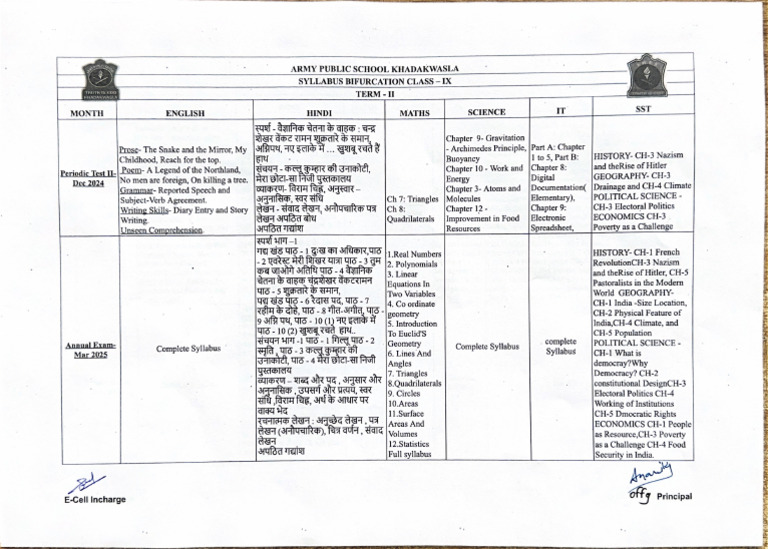 ARMY PUBLIC SCHOOL KHADAKWASLA
SYLLABUS BIFURCATION CLASS – IX
TERM - II
MONTH
ENGLISH
HINDI
MATHS
SCIENCE
IT
SST
Periodic Test II-
Dec 2024
Prose- The Snake and the Mirror, My
Childhood, Reach for the top.
Poem- A Legend of the Northland,
No men are foreign, On killing a tree.
Grammar- Reported Speech and
Subject-Verb Agreement.
Writing Skills- Diary Entry and Story
Writing.
Unseen Comprehension.
स्पर्श - वैज्ञानिक चेतना के वाहक : चन्द्र
शेखर वेंकट रामन शुक्रतारे के समान,
अग्निपथ, नए इलाके में ... खुशबू रचते हैं
हाथ
संचयन - कल्लू कुम्हार की उनाकोटी,
मेरा छोटा-सा निजी पुस्तकालय
व्याकरण- विराम चिह्न, अनुस्वार –
अनुनासिक, स्वर संधि
लेखन - संवाद लेखन, अनौपचारिक पत्र
लेखन अपठित बोध
अपठित गद्यांश
Ch 7: Triangles
Ch 8:
Quadrilaterals
Chapter 9- Gravitation
- Archimedes Principle,
Buoyancy
Chapter 10 - Work and
Energy
Chapter 3- Atoms and
Molecules
Chapter 12 -
Improvement in Food
Resources
Part A: Chapter
1 to 5, Part B:
Chapter 8:
Digital
Documentation(
Elementary),
Chapter 9:
Electronic
Spreadsheet,
HISTORY- CH-3 Nazism
and theRise of Hitler
GEOGRAPHY- CH-3
Drainage and CH-4 Climate
POLITICAL SCIENCE -
CH-3 Electoral Politics
ECONOMICS CH-3
Poverty as a Challenge
Annual Exam-
Mar 2025
Complete Syllabus
स्पर्श भाग –1
गद्य खंड पाठ - 1 दुःख का अधिकार,पाठ
- 2 एवरेस्ट मेरी शिखर यात्रा पाठ - 3 तुम
कब जाओगे अतिथि पाठ - 4 वैज्ञानिक
चेतना के वाहक चंद्रशेखर वेंकटरामन
पाठ - 5 शुक्रतारे के समान,
पद्य खंड पाठ - 6 रैदास पद, पाठ - 7
रहीम के दोहे, पाठ - 8 गीत-अगीत, पाठ -
9 अग्नि पथ, पाठ - 10 (1) नए इलाके में
पाठ - 10 (2) खुशबू रचते हाथ..
संचयन भाग -1 पाठ - 1 गिल्लू पाठ - 2
स्मृति , पाठ - 3 कल्लू कुम्हार की
उनाकोटी, पाठ - 4 मेरा छोटा-सा निजी
पुस्तकालय
व्याकरण – शब्द और पद , अनुसार और
अनुनासिक , उपसर्ग और प्रत्यय, स्वर
संधि ,विराम चिह्न, अर्थ के आधार पर
वाक्य भेद
रचनात्मक लेखन : अनुच्छेद लेखन , पत्र
लेखन (अनौपचारिक), चित्र वर्णन , संवाद
लेखन
अपठित गद्यांश
1.Real Numbers
2. Polynomials
3. Linear
Equations In
Two Variables
4. Co ordinate
geometry
5. Introduction
To Euclid'S
Geometry
6. Lines And
Angles
7. Triangles
8.Quadrilaterals
9. Circles
10.Areas
11.Surface
Areas And
Volumes
12.Statistics
Full syllabus
Complete Syllabus
complete
Syllabus
HISTORY- CH-1 French
RevolutionCH-3 Nazism
and theRise of Hitler, CH-5
Pastoralists in the Modern
World GEOGRAPHY-
CH-1 India -Size Location,
CH-2 Physical Feature of
India,CH-4 Climate, and
CH-5 Population
POLITICAL SCIENCE -
CH-1 What is
democray?Why
Democracy? CH-2
constitutional DesignCH-3
Electoral Politics CH-4
Working of Institutions
CH-5 Dmocratic Rights
ECONOMICS CH-1 People
as Resource,CH-3 Poverty
as a Challenge CH-4 Food
Security in India.
E-Cell Incharge
offg Principal